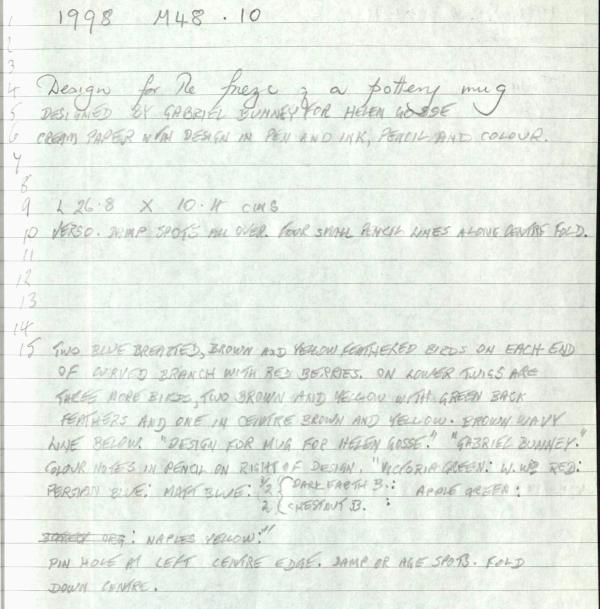 1 1998 M48.10
2
3
4 Design for the frieze of a pottery mug
5 DESIGNED BY GABRIEL BUNNEY FOR HELEN GOSSE
6 CREAM PAPER WITH DESIGN IN PEN AND INK, PENCIL AND COLOUR.
7
8
9 L 26.8 X 10.4 cms
10 VERSO. DAMP SPOTS ALL OVER. FOUR SMALL PENCIL LINES ALONG CENTRE FOLD.
11
12
13
14
15 TWO BLUE BREASTED, BROWN AND YELLOW FEATHERED BIRDS ON EACH END
OF CURVED BRANCH WITH RED BERRIES. ON LOWER TWIGS ARE
THREE MORE BIRDS, TWO BROWN AND YELLOW WITH GREEN BACK
FEATHERS AND ONE IN CENTRE BROWN AND YELLOW. BROWN WAVY
LINE BELOW. "DESIGN FOR MUG FOR HELEN GOSSE." "GABRIEL BUNNEY."
COLOUR NOTES IN PENCIL ON RIGHT OF DESIGN. "VICTORIA GREEN: W. RED:
PERSIAN BLUE: MATT BLUE: { DARK EARTH B.: APPLE GREEN:
2 { CHESTNUT B. :
: NAPLES YELLOW:"
PIN HOLE AT LEFT CENTRE EDGE. DAMP OR AGE SPOTS. FOLD
DOWN CENTRE.